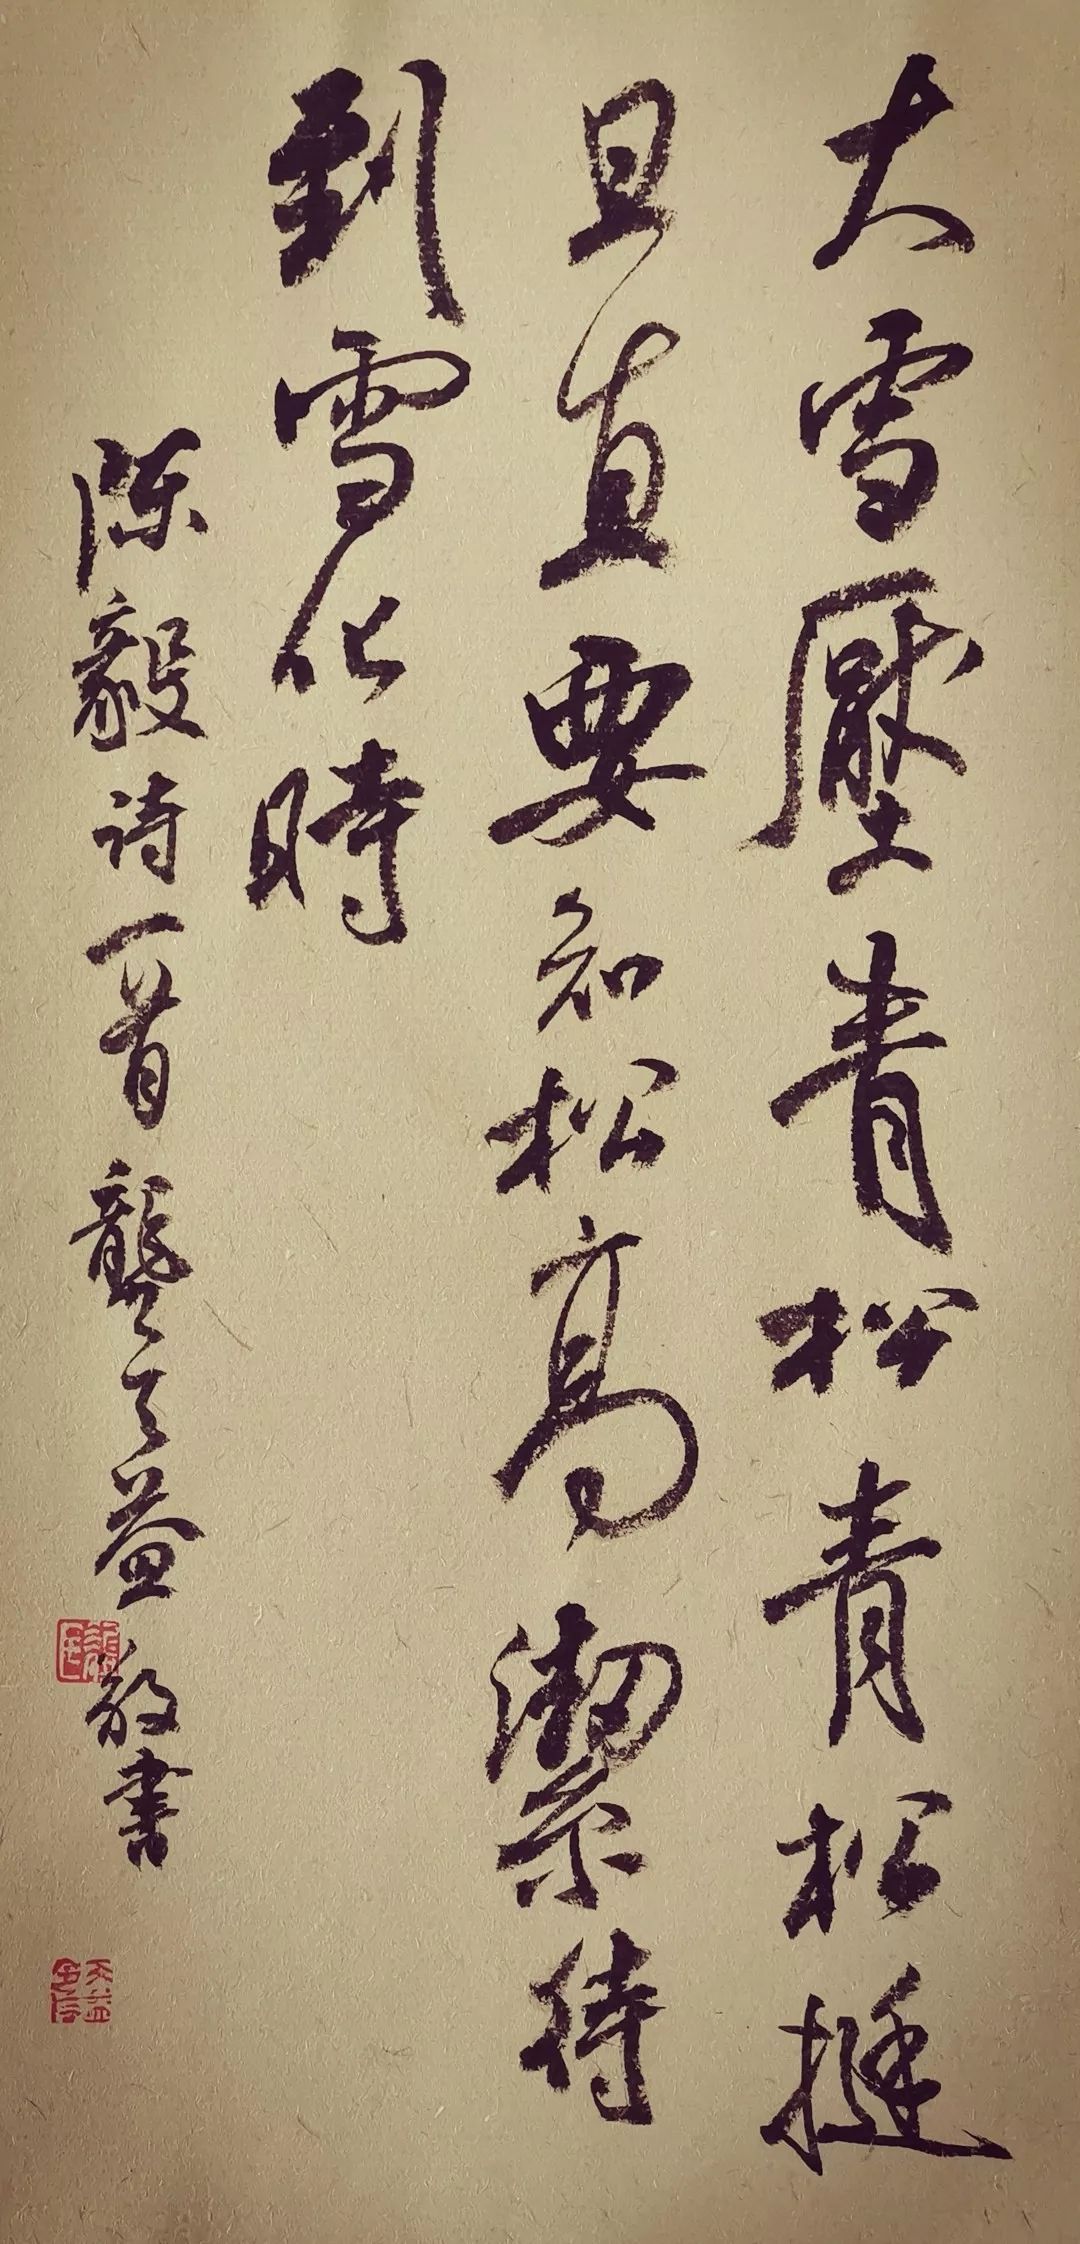 大雪壓青松青松挺
且直要知松高潔待
到雪化時
陈毅诗一首龔天益敬書